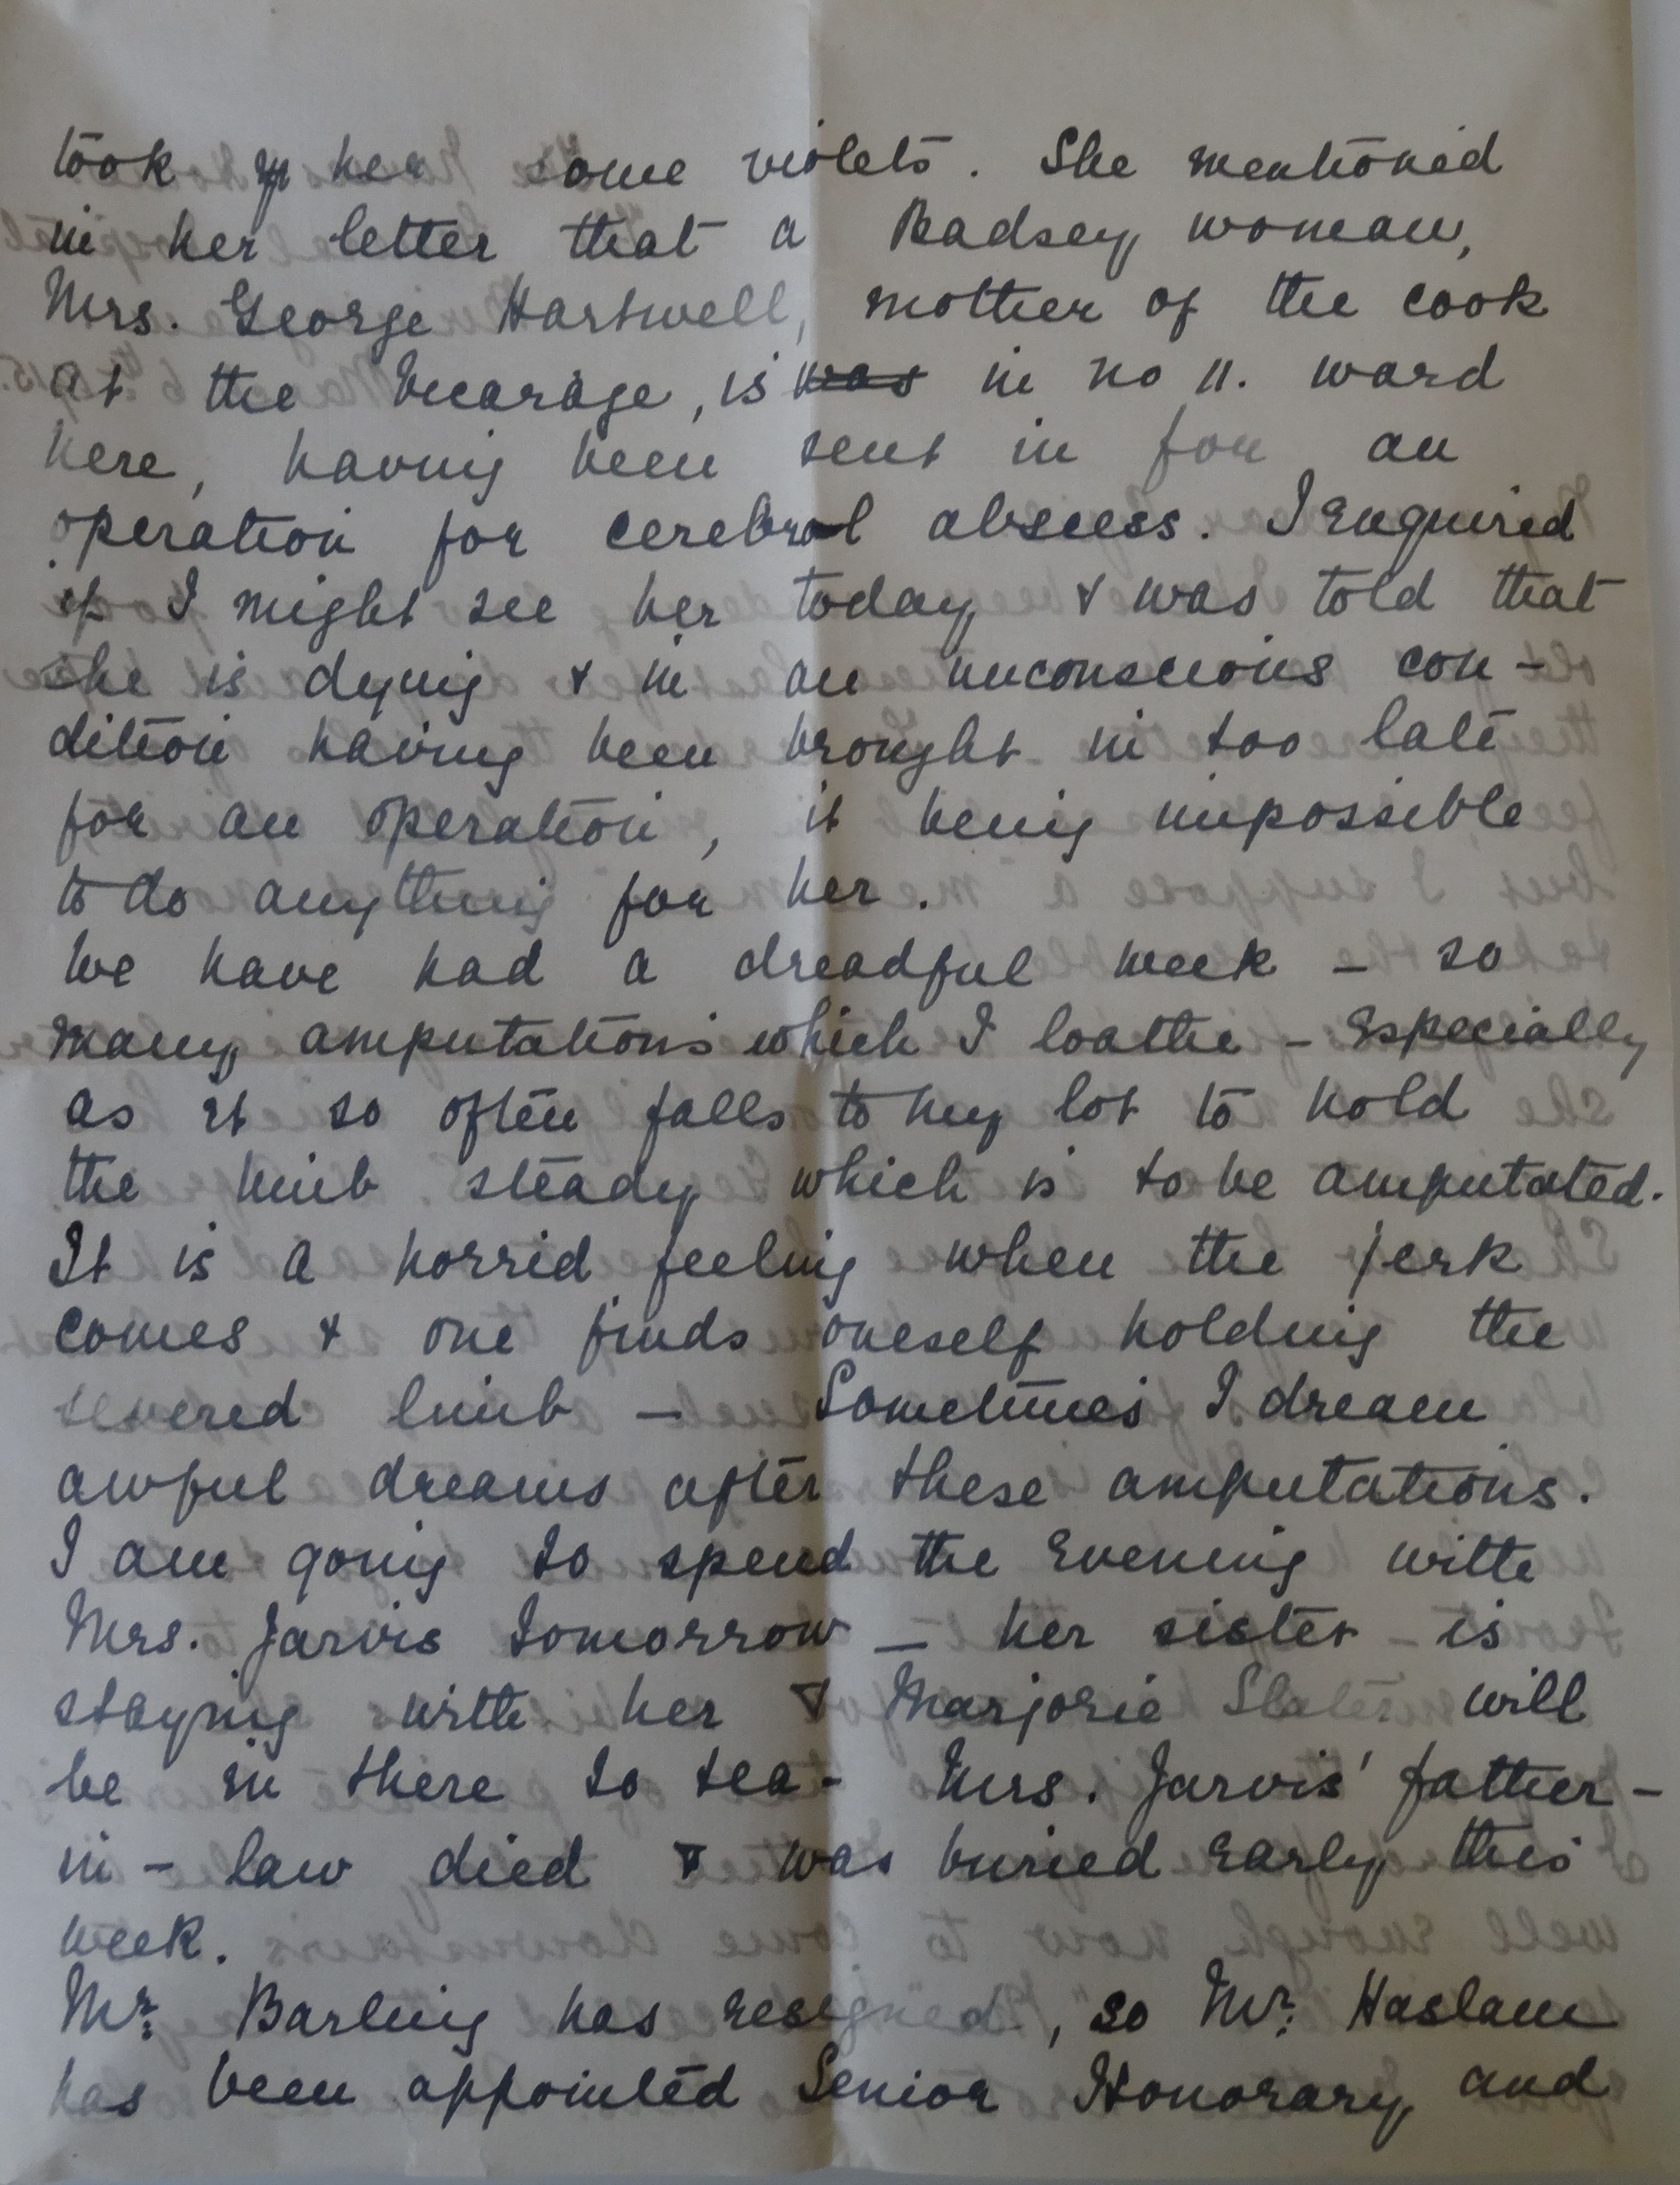 took her some violets. She mentioned
in her letter that a Badsey woman,
Mrs. George Hartwell, mother of the cook
at the Vicarage, is was in no 11. ward
here, having been sent in for an
operation for cerebral abscess. I enquired
if I might see her today & was told that
she is dying & in an unconscious con-
dition having been brought in too late
for an operation, it being impossible
to do anything for her.
We have had a dreadful week - so
many amputations which I loathe - especially
as it so often falls to my lot to hold
the limb steady which is to be amputated.
It is a horrid feeling when the jerk
comes & one finds oneself holding the
severed limb - Sometimes I dream
awful dreams after these amputations.
I am going to spend the evening with
Mrs. Jarvis tomorrow - her sister is
staying with her & Marjorie Slater will
be in there to tea - Mrs. Jarvis' father-
in-law died & was buried early this
week.
Mr. Barling has "resigned", so Mr. Haslam
has been appointed Senior Honorary and